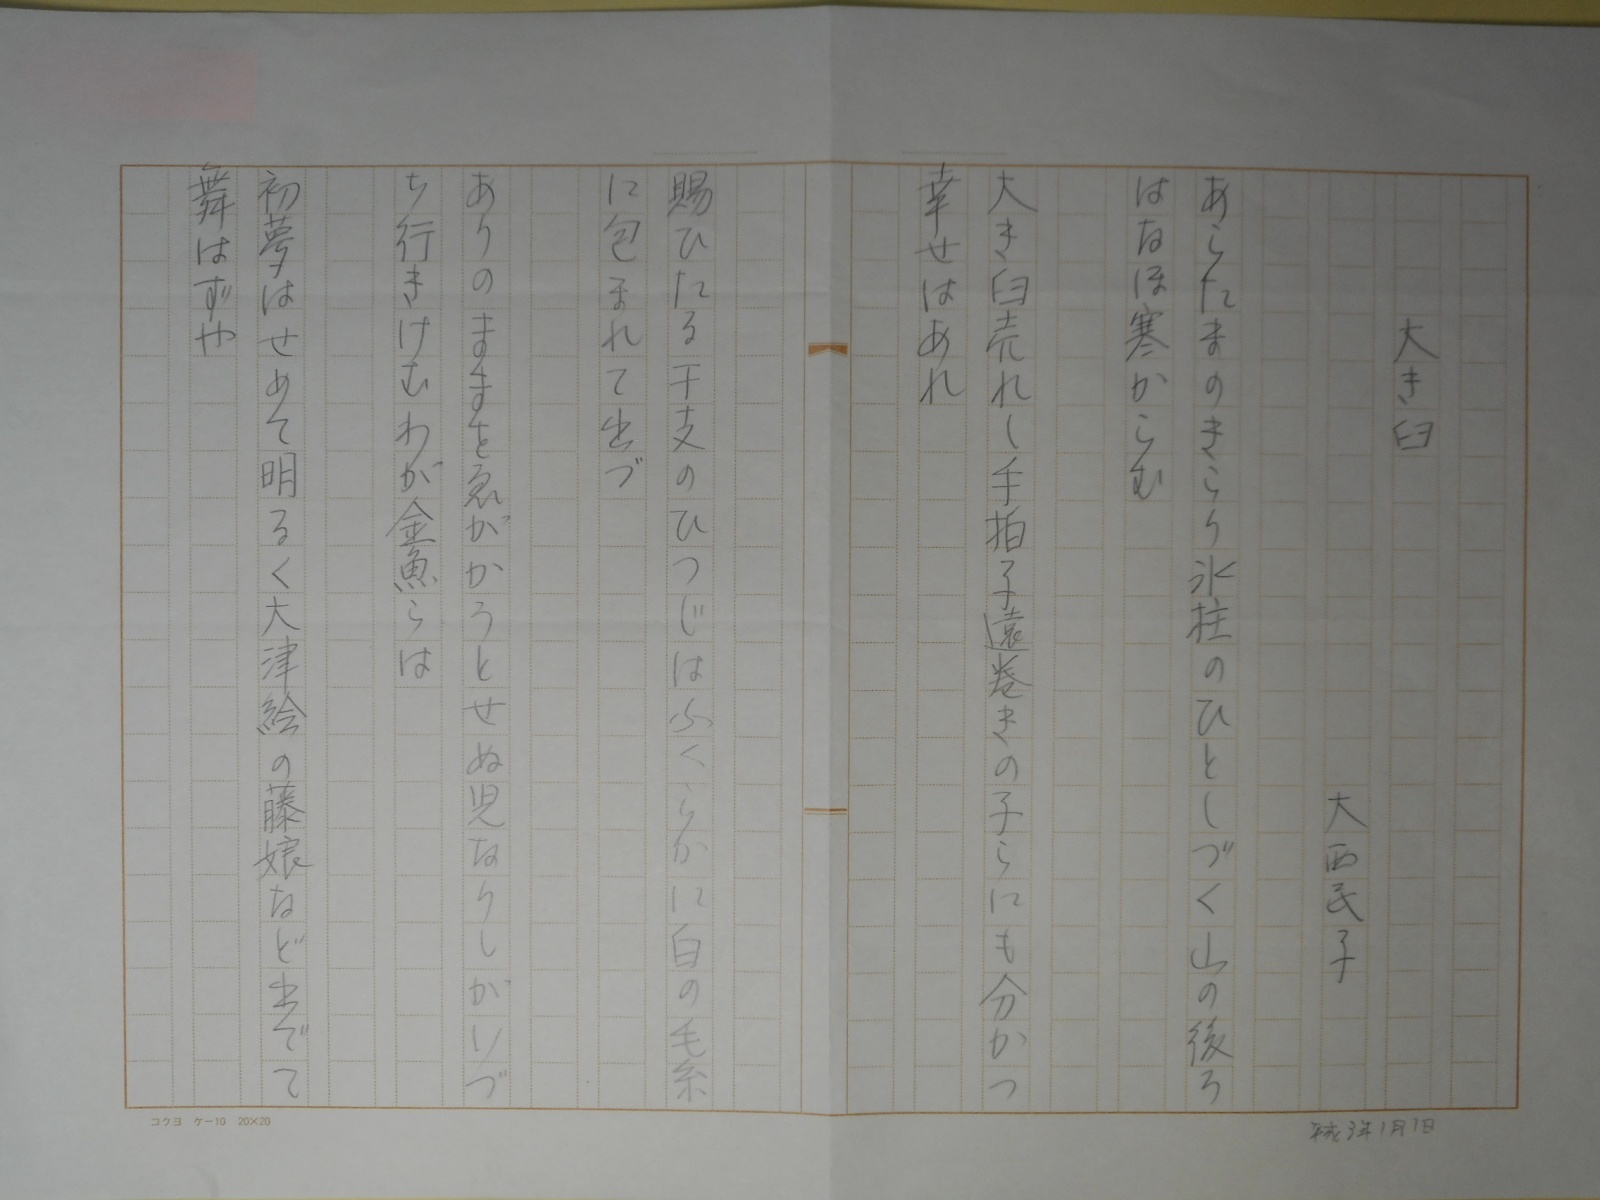 大き臼
大西民子
あらたまのきらり氷柱のひとしづく山の後ろ
はなほ寒からむ
大き臼売れし手拍子遠巻きの子らにも分かつ
幸せはあれ
賜ひたる干支のひつじはふくらかに白の毛糸
に包まれて出づ
ありのままをゑがかうとせぬ児なりしがいづ
ち行きけむわが金魚らは
初夢はせめて明るく大津絵の藤娘など出でて
舞はずや
平成3年1月1日
コクヨ ケー10 20×20